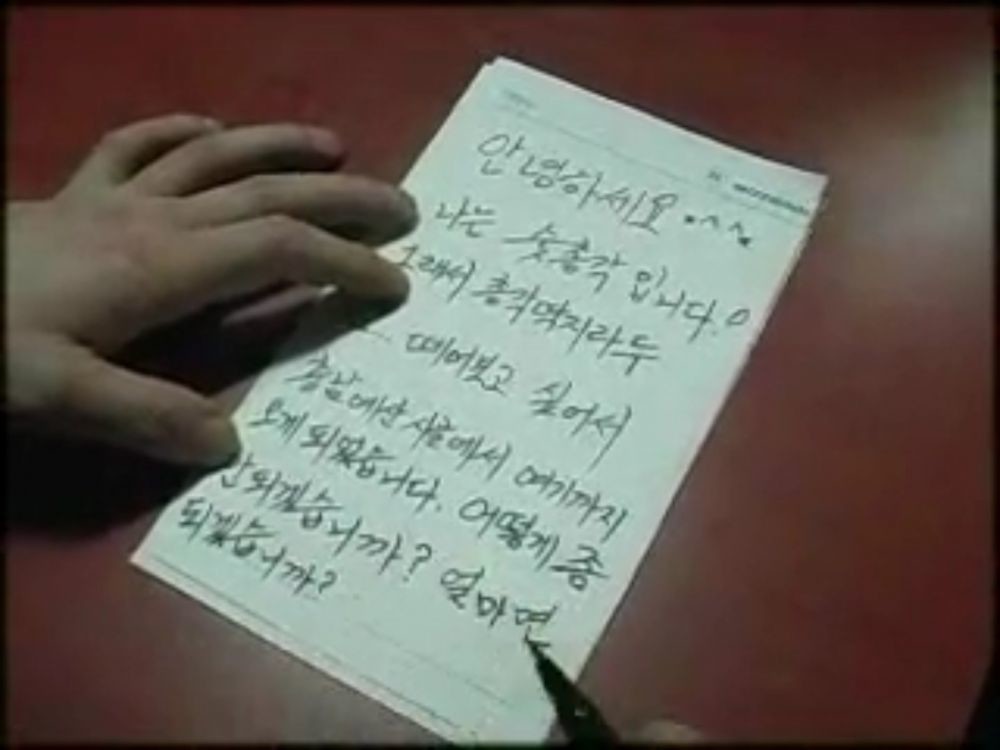 안녕하세요.^^.
나는 숫총각 입니다.
그래서 총각딱지라두
... 떼어보고 싶어서
충남예산시골에서 여기까지
오게 되었습니다. 어떻게 좀
안되겠습니까? 얼마면
되겠습니까?